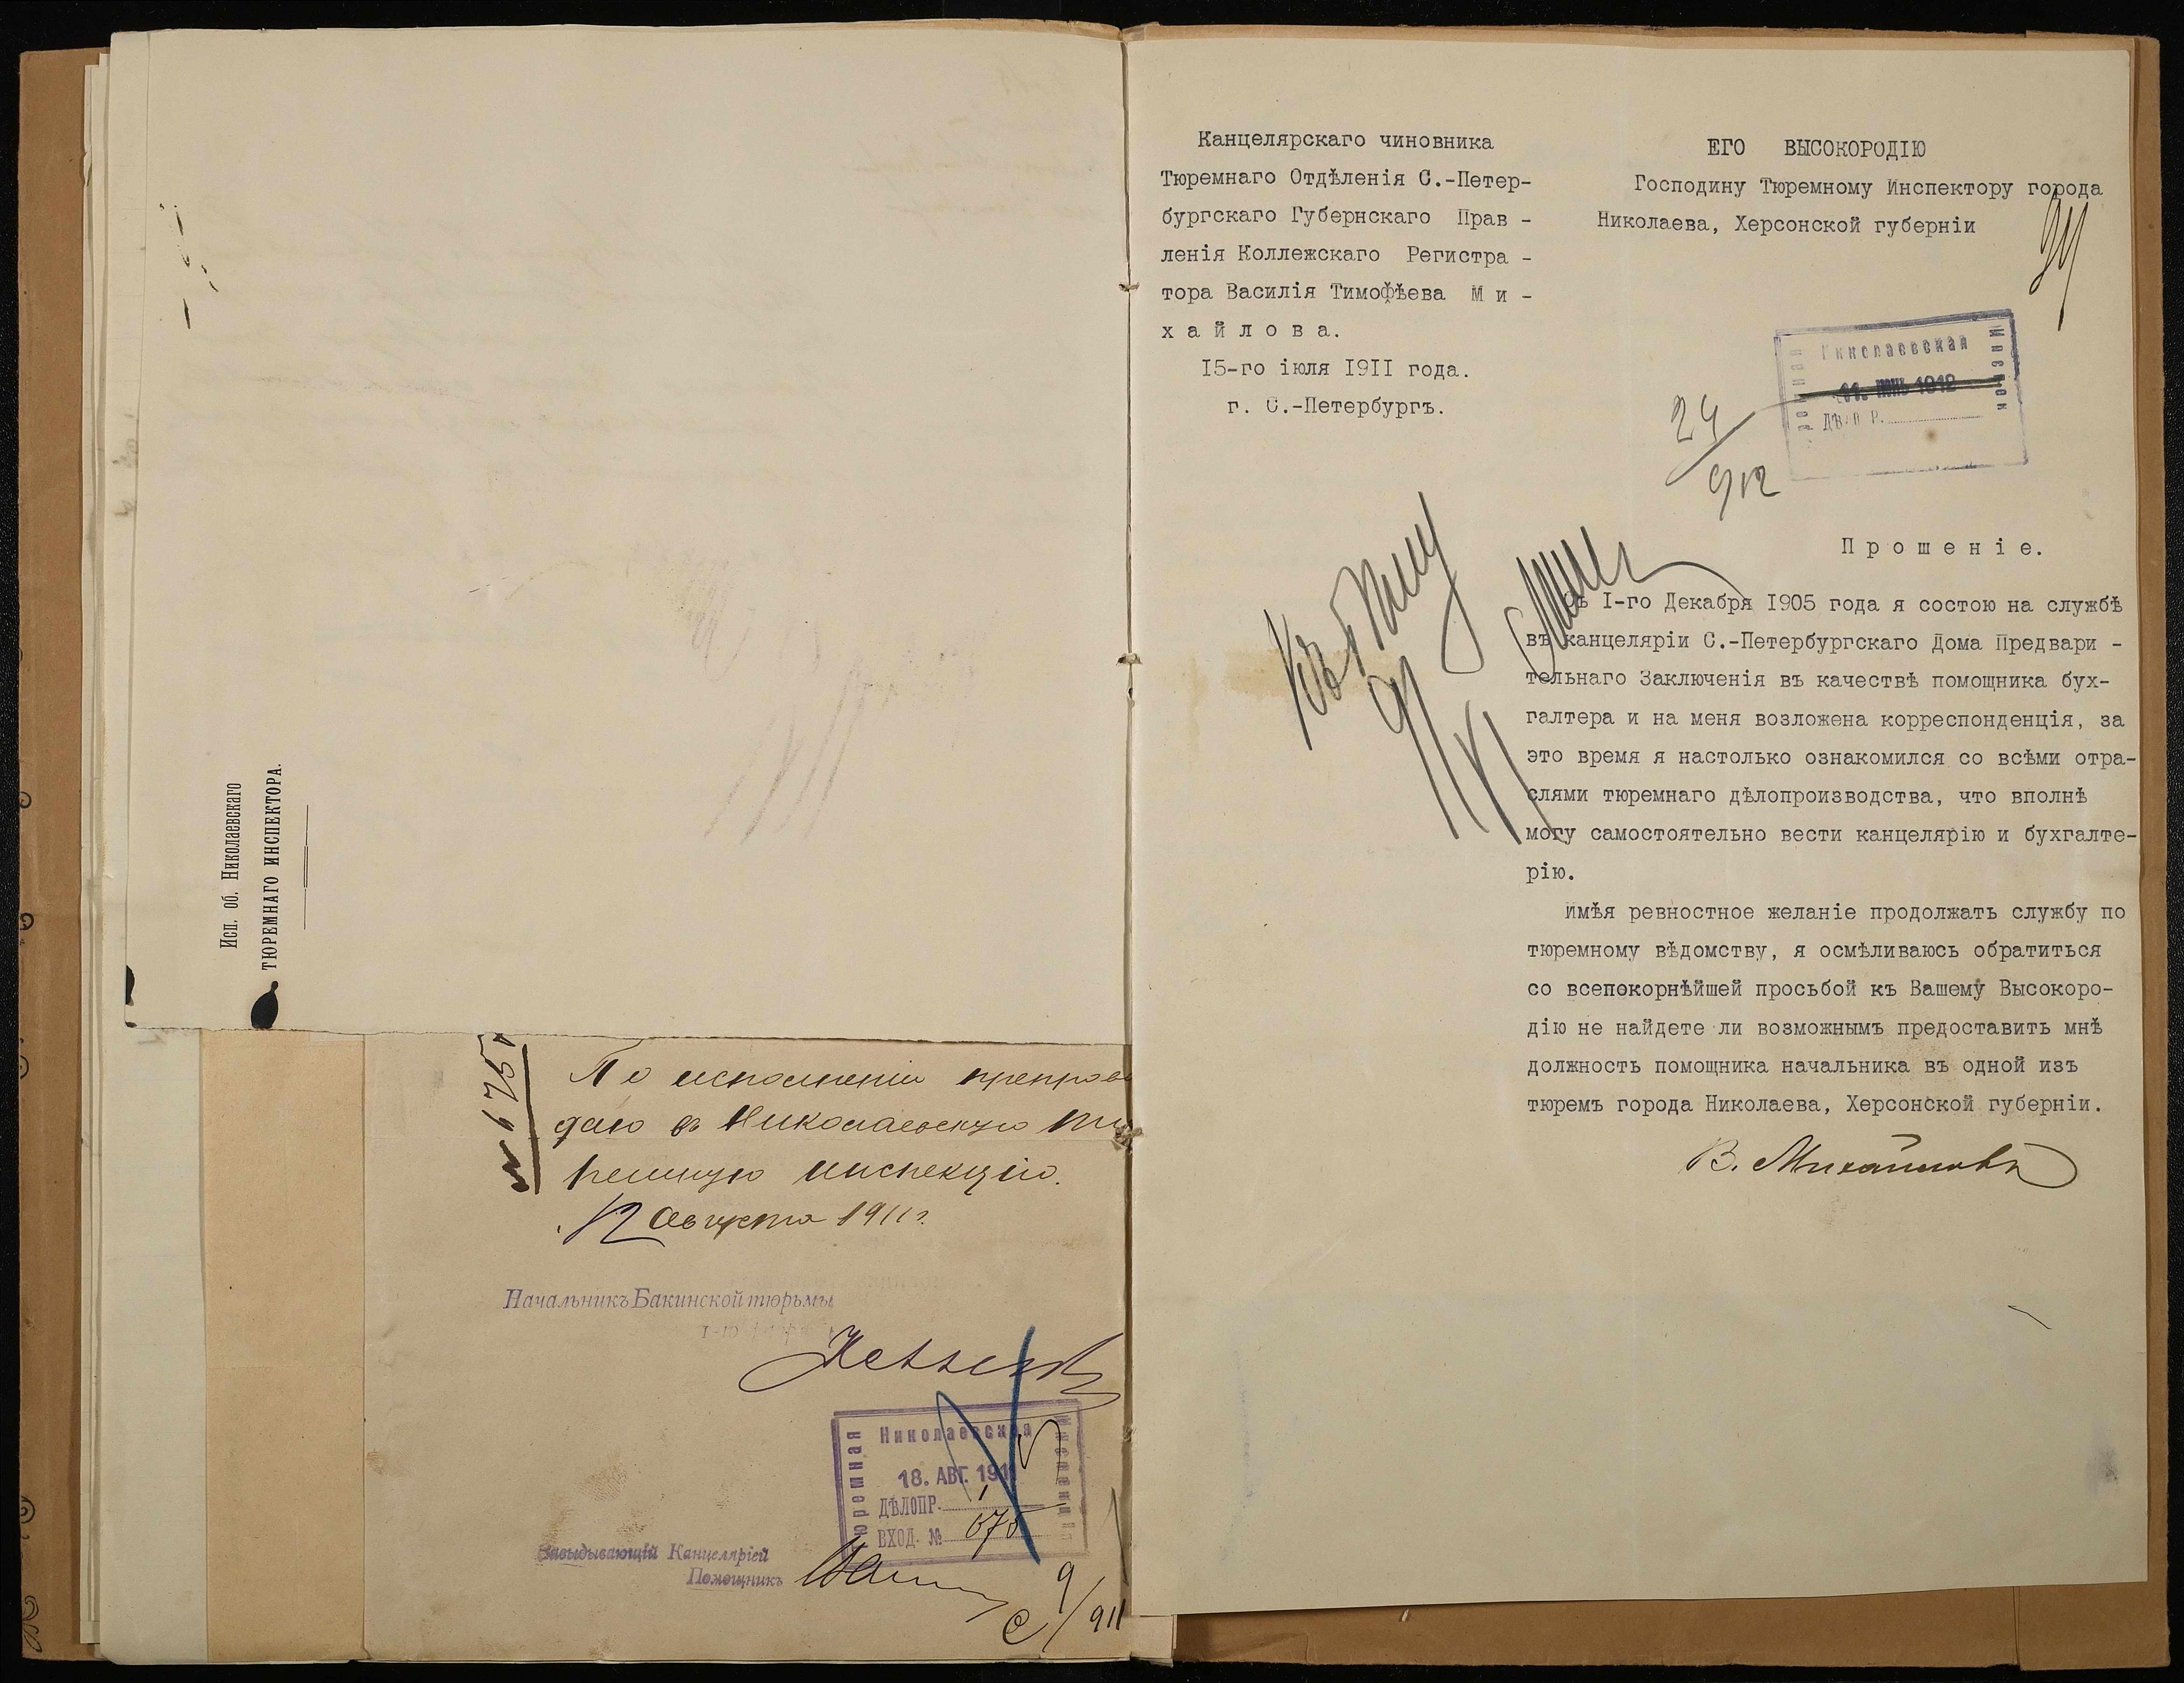 Исп. об. Николаевскаго
ТЮРЕМНАГО ИНСПЕКТОРА.
№ 675
По исполненіи препрово
даю въ Николаевскую тю
ремную инспекцію.
12 Августа 1911 г.
Начальникъ Бакинской тюрьмы
Николаевская
Тюремная
Инспекція
18. АВГ. 1911
ДѢЛОПР. 1
ВХОД. № 675
Завѣдывающій Канцеляріей
Помощникъ
9/911
Канцелярскаго чиновника
Тюремнаго Отдѣленія С.-Петер-
бургскаго Губернскаго Прав -
ленія Коллежскаго Регистра -
тора Василія Тимофѣева М и -
х а й л о в а.
15-го іюля 1911 года.
г. С.-Петербургъ.
ЕГО ВЫСОКОРОДІЮ
Господину Тюремному Инспектору города
Николаева, Херсонской губерніи
Николаевская
11. ИЮНЬ 1912
24/912
П р о ш е н і е.
Съ I-го Декабря 1905 года я состою на службѣ
въ канцеляріи С.-Петербургскаго Дома Предвари -
тельнаго Заключенія въ качествѣ помощника бух-
галтера и на меня возложена корреспонденція, за
это время я настолько ознакомился со всѣми отра-
слями тюремнаго дѣлопроизводства, что вполнѣ
могу самостоятельно вести канцелярію и бухгалте-
рію.
Имѣя ревностное желаніе продолжать службу по
тюремному вѣдомству, я осмѣливаюсь обратиться
со всепокорнѣйшей просьбой къ Вашему Высокоро-
дію не найдете ли возможнымъ предоставить мнѣ
должность помощника начальника въ одной изъ
тюремъ города Николаева, Херсонской губерніи.
В. Михайловъ